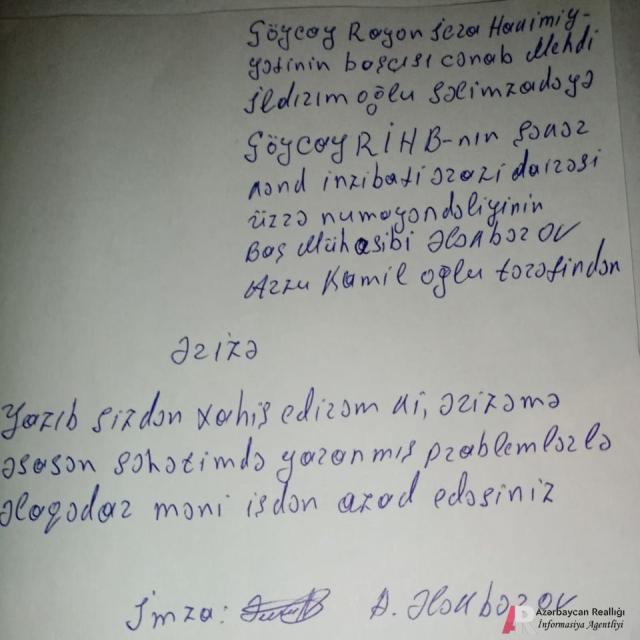 Göyçay Rayon İcra Hakimiy-
yətinin başçısı cənab Mehdi
İldırım oğlu Səlimzadəyə
Göyçay RİHB-nın
kənd inzibati ərazi dairəsi
üzrə numayəndəliyinin
Baş Mühasibi Ələkbərov
Arzu Kamil oğlu tərəfindən
Ərizə
Yazıb sizdən xahiş edirəm ki, ərizəmə
əsasən səhətimdə yaranmış problemlərlə
əlaqədar məni işdən azad edəsiniz
İmza: A. Ələkbərov
Azərbaycan Reallığı
İnformasiya Agentliyi